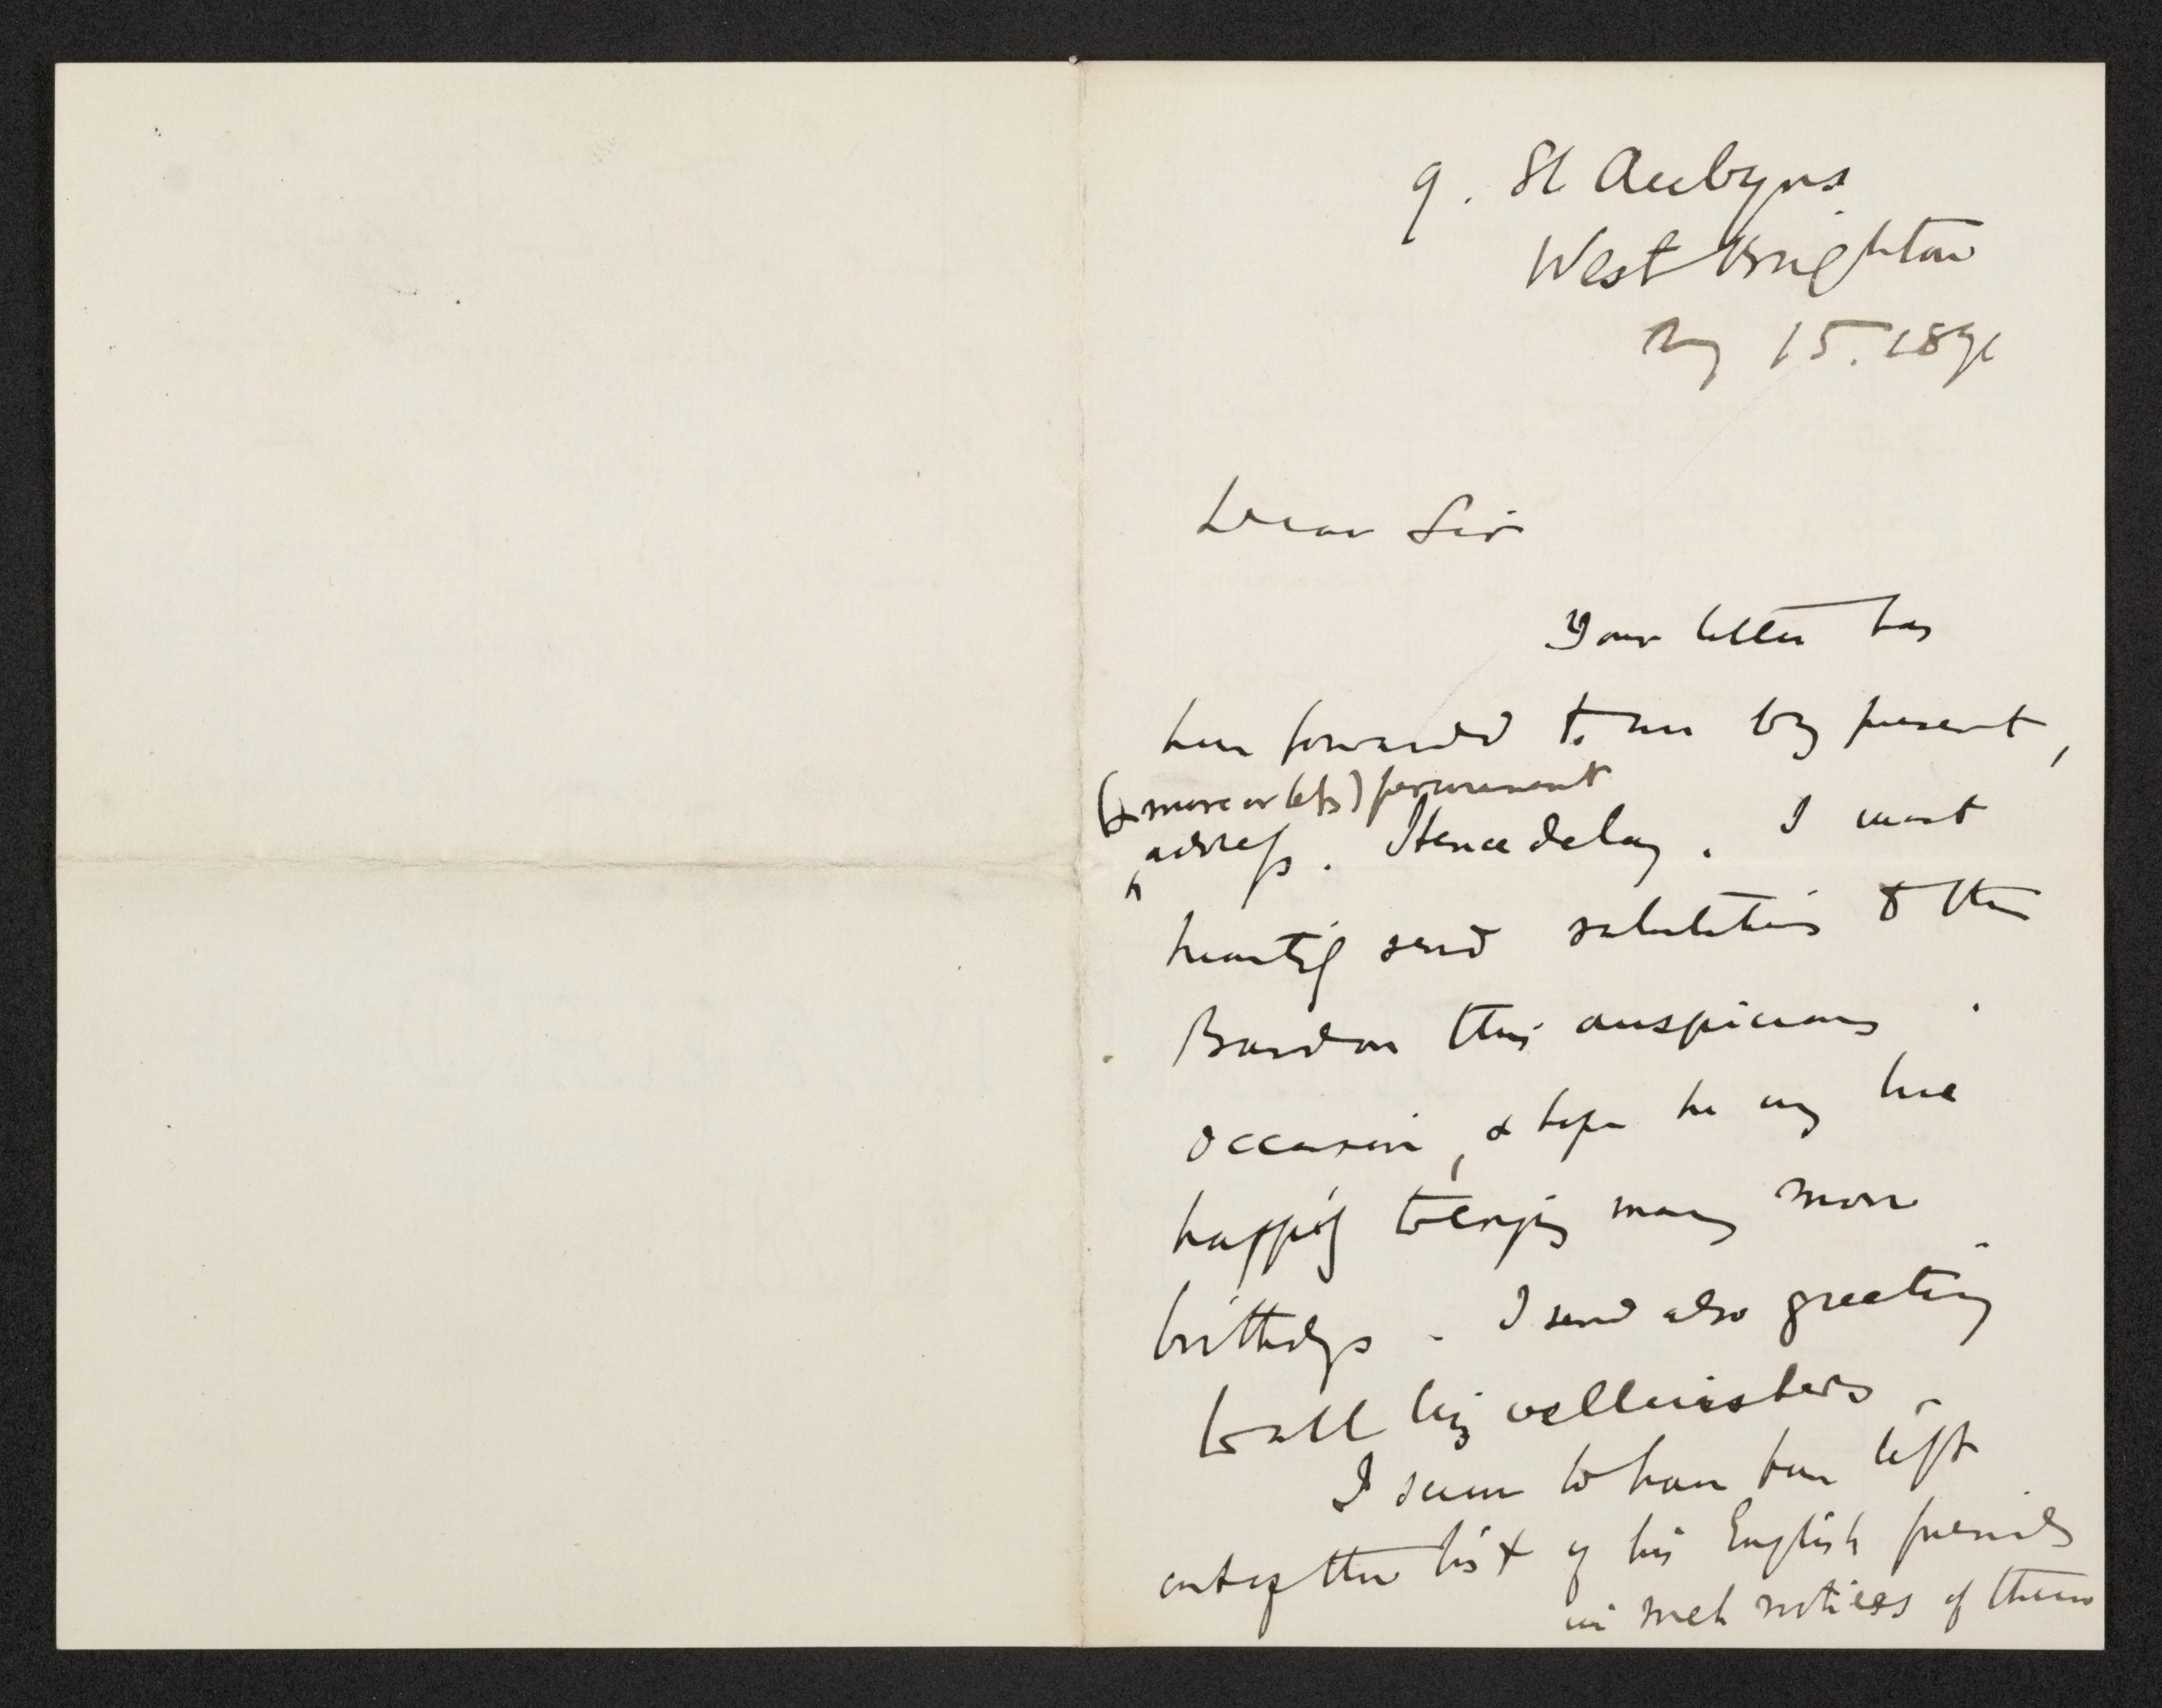 9. St Aubyns
West Brighton
May 15. 1891
Dear Sir
Your letter has
been forwarded to me by present,
(& more or less) permanent
address. Hence delay. I most
heartily send salutations to the
Bard on this auspicious
occasion, & hope he may live
happily to enjoy many more
birthdays. I send also greeting
to all his wellwishers.
I seem to have been left
out of the list of his English friends
in such notices of them